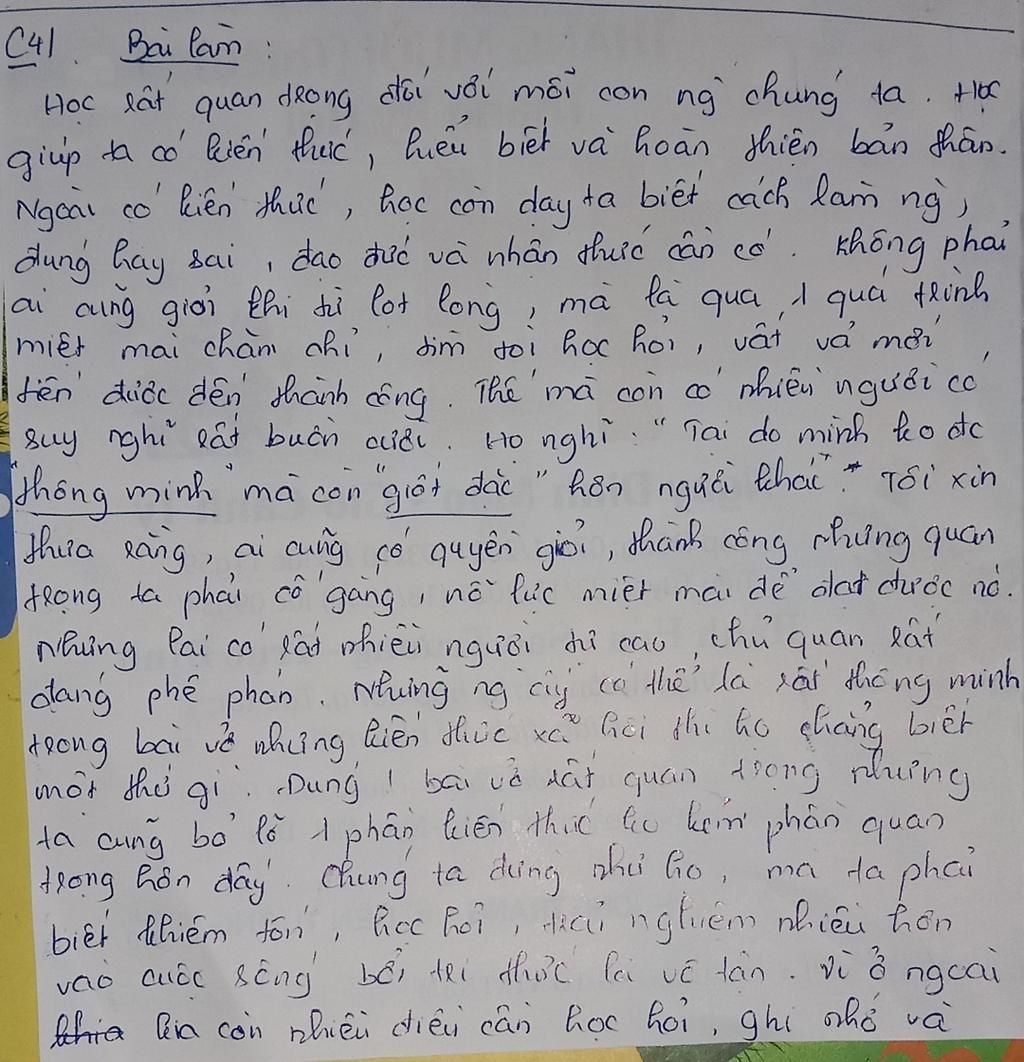 C41. Bài làm:
Học rất quan trọng đối với mỗi con ng chúng ta. Học
giúp ta có kiến thức, hiểu biết và hoàn thiện bản thân.
Ngoài có kiến thức, học còn dạy ta biết cách làm ng,
đúng hay sai, đạo đức và nhận thức cần có. Không phải
ai cũng giỏi khi từ lọt lòng, mà là qua 1 quá trình
miệt mài chăm chỉ, tìm tòi học hỏi, vất vả mới
tiến được đến thành công. Thế mà còn có nhiều người có
suy nghĩ rất buồn cười. Họ nghĩ: "Tại do mình ko đc
"thông minh" mà còn "giốt đặc" hơn người khác". Tôi xin
thưa rằng, ai cũng có quyền giỏi, thành công nhưng quan
trọng ta phải cố gắng, nỗ lực miệt mài để đạt được nó.
Nhưng lại có rất nhiều người tự cao, chủ quan rất
đáng phê phán. Những ng ấy có thể là rất thông minh
trong bài vở nhưng kiến thức xã hội thì họ chẳng biết
một thứ gì. Đúng! bài vở rất quan trọng nhưng
ta cũng bỏ lỡ 1 phần kiến thức ko kém phần quan
trọng hơn đấy. Chúng ta đừng như họ, mà ta phải
biết khiêm tốn, học hỏi, trải nghiệm nhiều hơn
vào cuộc sống bởi tri thức là vô tận. Vì ở ngoài
kia còn nhiều điều cần học hỏi, ghi nhớ và